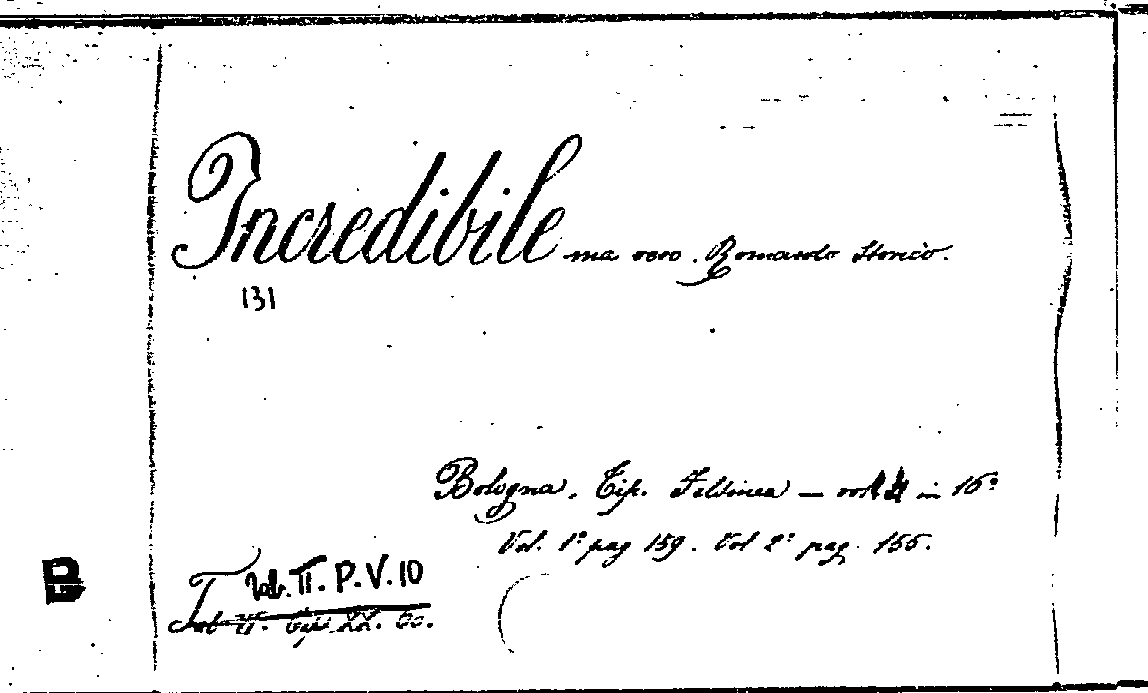 Incredibile ma vero. Romanzo Storico.
131
Bologna. Tip. Felsinea — in 16°
Vol. 1° pag 159. Vol 2° pag. 155.
Tab. II. P.V.10
Tab II.